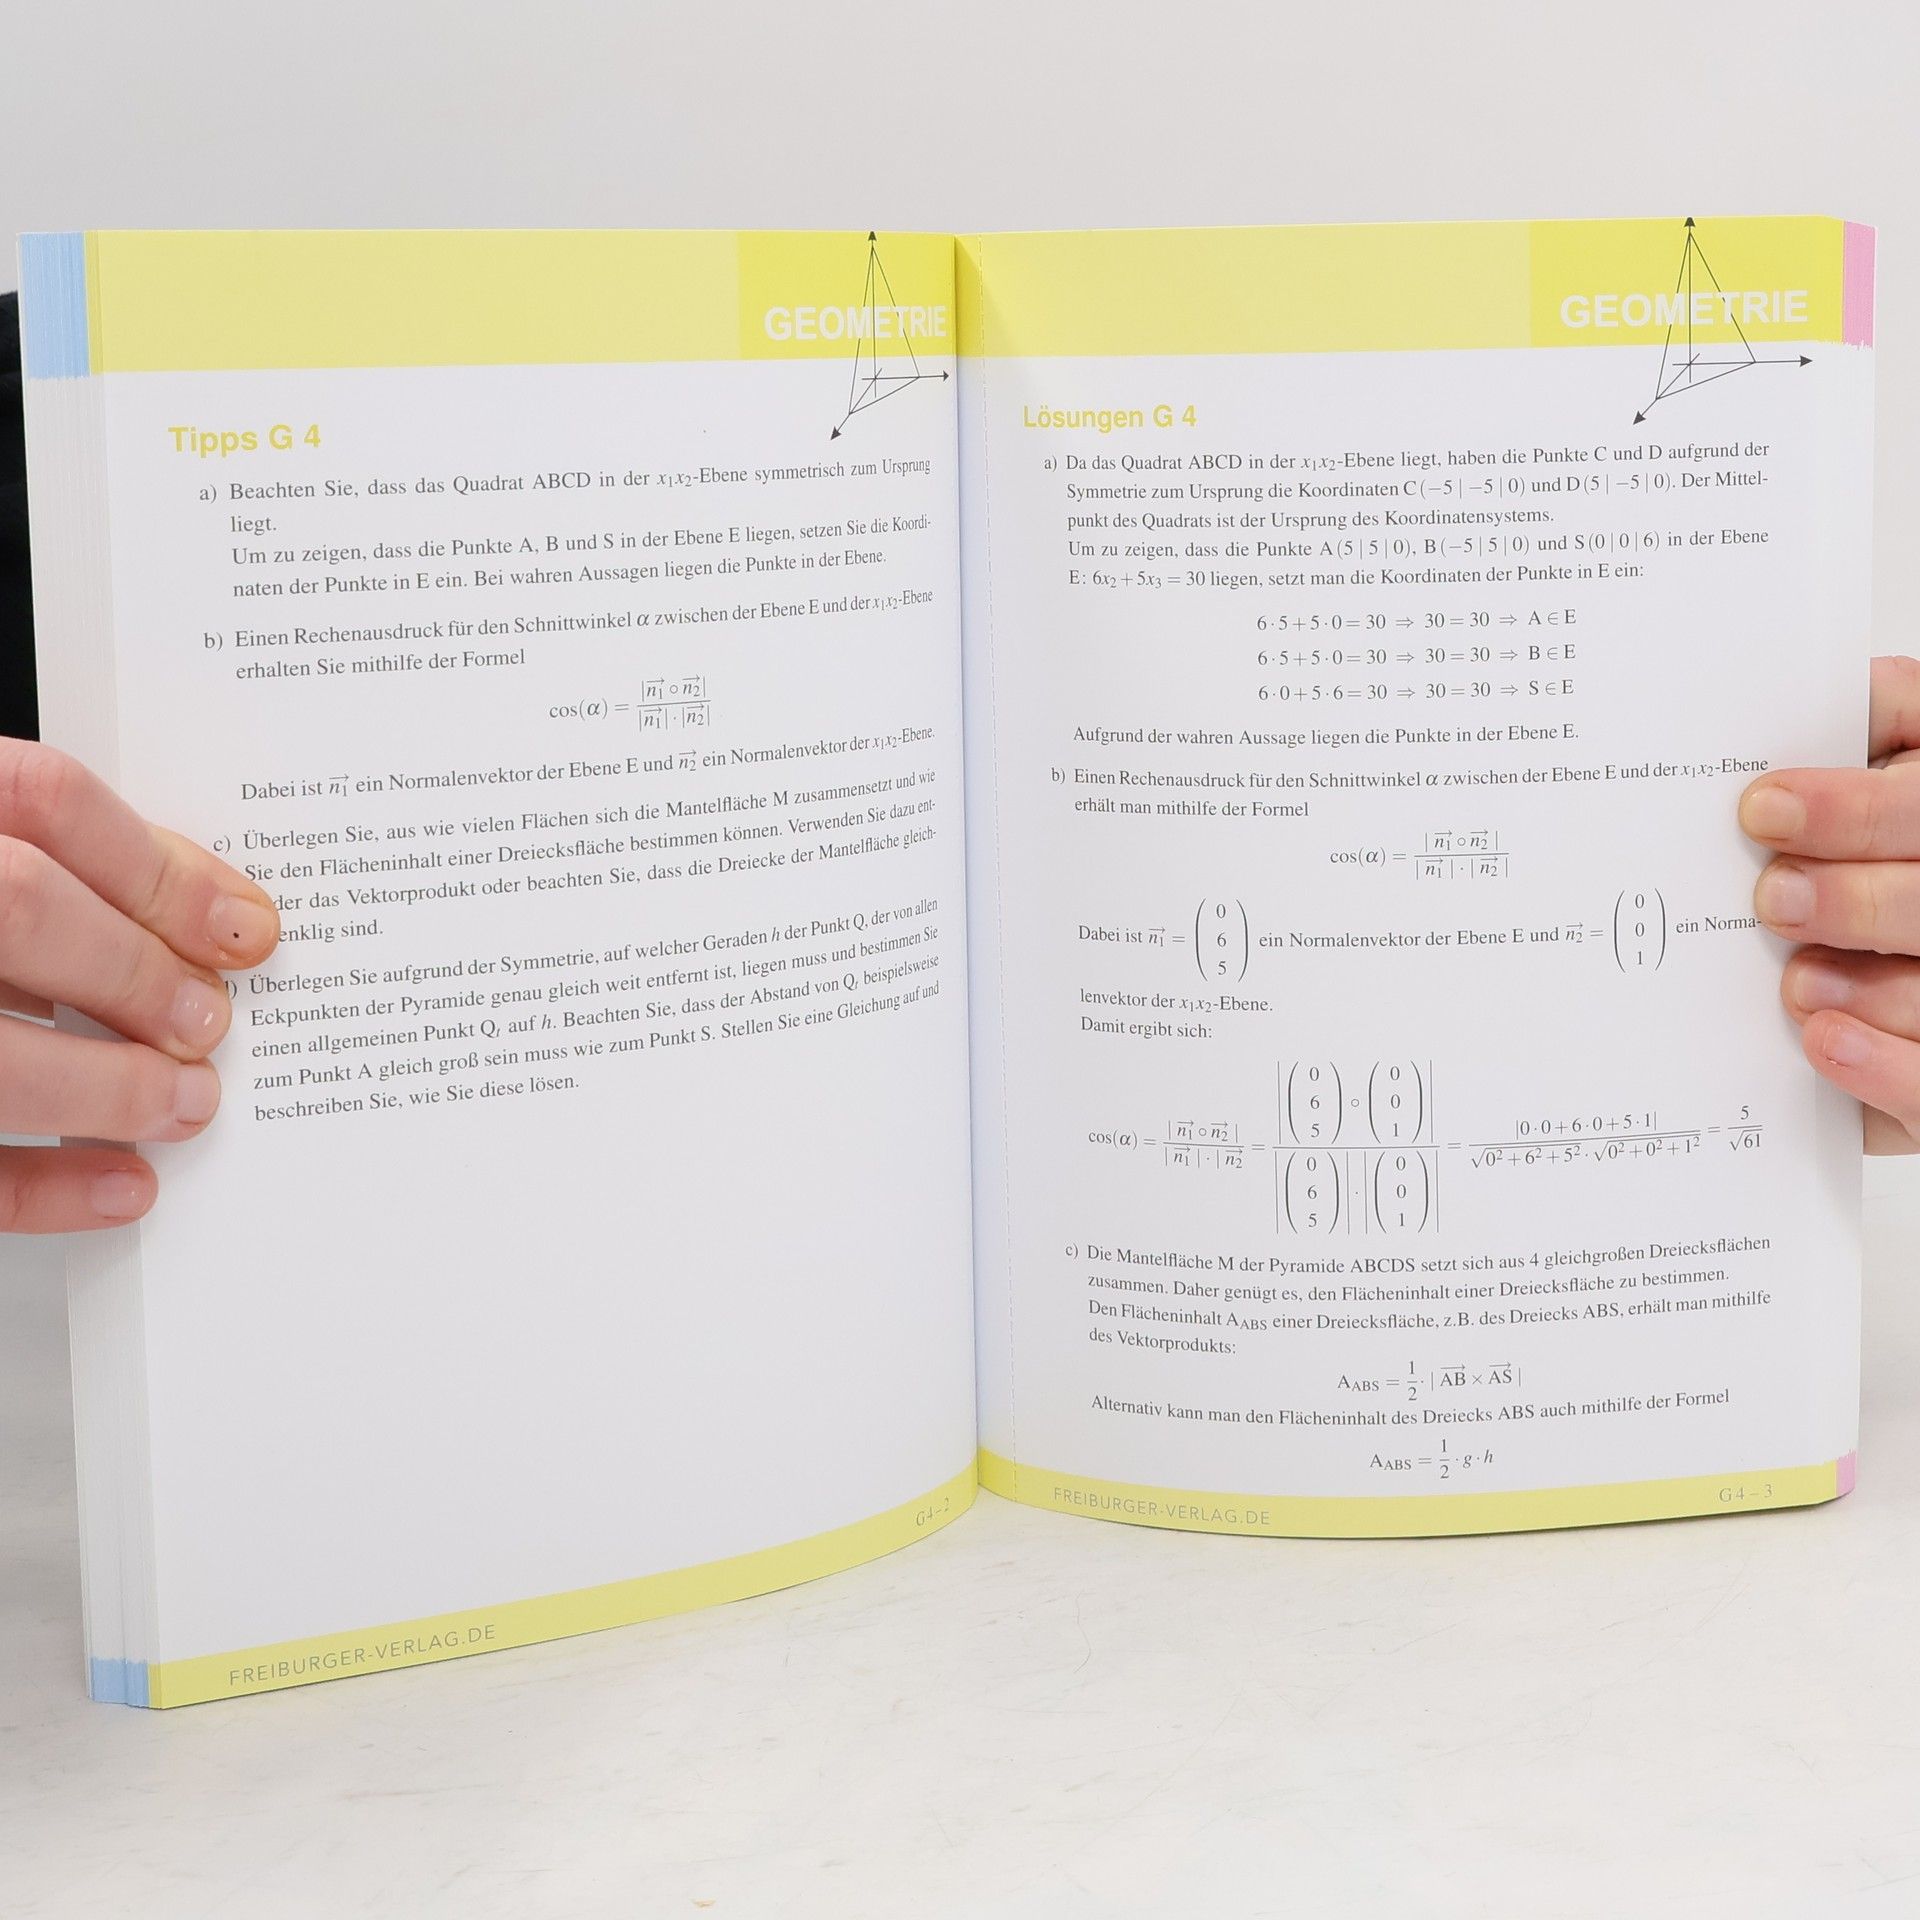 GEOMETRIE
Tipps G 4
a) Beachten Sie, dass das Quadrat ABCD in der x₁x₂-Ebene symmetrisch zum Ursprung
liegt.
Um zu zeigen, dass die Punkte A, B und S in der Ebene E liegen, setzen Sie die Koordi-
naten der Punkte in E ein. Bei wahren Aussagen liegen die Punkte in der Ebene.
b) Einen Rechenausdruck für den Schnittwinkel α zwischen der Ebene E und der x₁x₂-Ebene
erhalten Sie mithilfe der Formel
cos(α) = |n₁⃗ ∘ n₂⃗| / |n₁⃗| · |n₂⃗|
Dabei ist n₁⃗ ein Normalenvektor der Ebene E und n₂⃗ ein Normalenvektor der x₁x₂-Ebene.
c) Überlegen Sie, aus wie vielen Flächen sich die Mantelfläche M zusammensetzt und wie
Sie den Flächeninhalt einer Dreiecksfläche bestimmen können. Verwenden Sie dazu ent-
der das Vektorprodukt oder beachten Sie, dass die Dreiecke der Mantelfläche gleich-
enklig sind.
) Überlegen Sie aufgrund der Symmetrie, auf welcher Geraden h der Punkt Q, der von allen
Eckpunkten der Pyramide genau gleich weit entfernt ist, liegen muss und bestimmen Sie
einen allgemeinen Punkt Qₜ auf h. Beachten Sie, dass der Abstand von Qₜ beispielsweise
zum Punkt A gleich groß sein muss wie zum Punkt S. Stellen Sie eine Gleichung auf und
beschreiben Sie, wie Sie diese lösen.
G4–2
FREIBURGER-VERLAG.DE
GEOMETRIE
Lösungen G 4
a) Da das Quadrat ABCD in der x₁x₂-Ebene liegt, haben die Punkte C und D aufgrund der
Symmetrie zum Ursprung die Koordinaten C(−5 | −5 | 0) und D(5 | −5 | 0). Der Mittel-
punkt des Quadrats ist der Ursprung des Koordinatensystems.
Um zu zeigen, dass die Punkte A(5 | 5 | 0), B(−5 | 5 | 0) und S(0 | 0 | 6) in der Ebene
E: 6x₂ + 5x₃ = 30 liegen, setzt man die Koordinaten der Punkte in E ein:
6·5+5·0 = 30 ⇒ 30 = 30 ⇒ A ∈ E
6·5+5·0 = 30 ⇒ 30 = 30 ⇒ B ∈ E
6·0+5·6 = 30 ⇒ 30 = 30 ⇒ S ∈ E
Aufgrund der wahren Aussage liegen die Punkte in der Ebene E.
b) Einen Rechenausdruck für den Schnittwinkel α zwischen der Ebene E und der x₁x₂-Ebene
erhält man mithilfe der Formel
cos(α) = | n₁⃗ ∘ n₂⃗ | / | n₁⃗ | · | n₂⃗ |
Dabei ist n₁⃗ = (0 6 5) ein Normalenvektor der Ebene E und n₂⃗ = (0 0 1) ein Norma-
lenvektor der x₁x₂-Ebene.
Damit ergibt sich:
cos(α) = | n₁⃗ ∘ n₂⃗ | / | n₁⃗ | · | n₂⃗ = |(0 6 5) ∘ (0 0 1)| / |(0 6 5)| · |(0 0 1)| = |0·0+6·0+5·1| / √(0²+6²+5²) · √(0²+0²+1²) = 5/√61
c) Die Mantelfläche M der Pyramide ABCDS setzt sich aus 4 gleichgroßen Dreiecksflächen
zusammen. Daher genügt es, den Flächeninhalt einer Dreiecksfläche zu bestimmen.
Den Flächeninhalt A_ABS einer Dreiecksfläche, z.B. des Dreiecks ABS, erhält man mithilfe
des Vektorprodukts:
A_ABS = 1/2 · | AB⃗ × AS⃗ |
Alternativ kann man den Flächeninhalt des Dreiecks ABS auch mithilfe der Formel
A_ABS = 1/2 · g · h
FREIBURGER-VERLAG.DE
G4–3